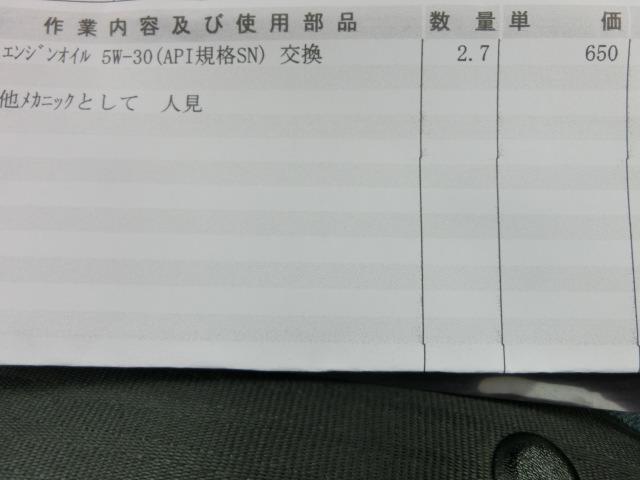 作業内容及び使用部品 数量 単価
ｴﾝｼﾞﾝｵｲﾙ 5W-30(API規格SN) 交換 2.7 650
他ﾒｶﾆｯｸとして 人見